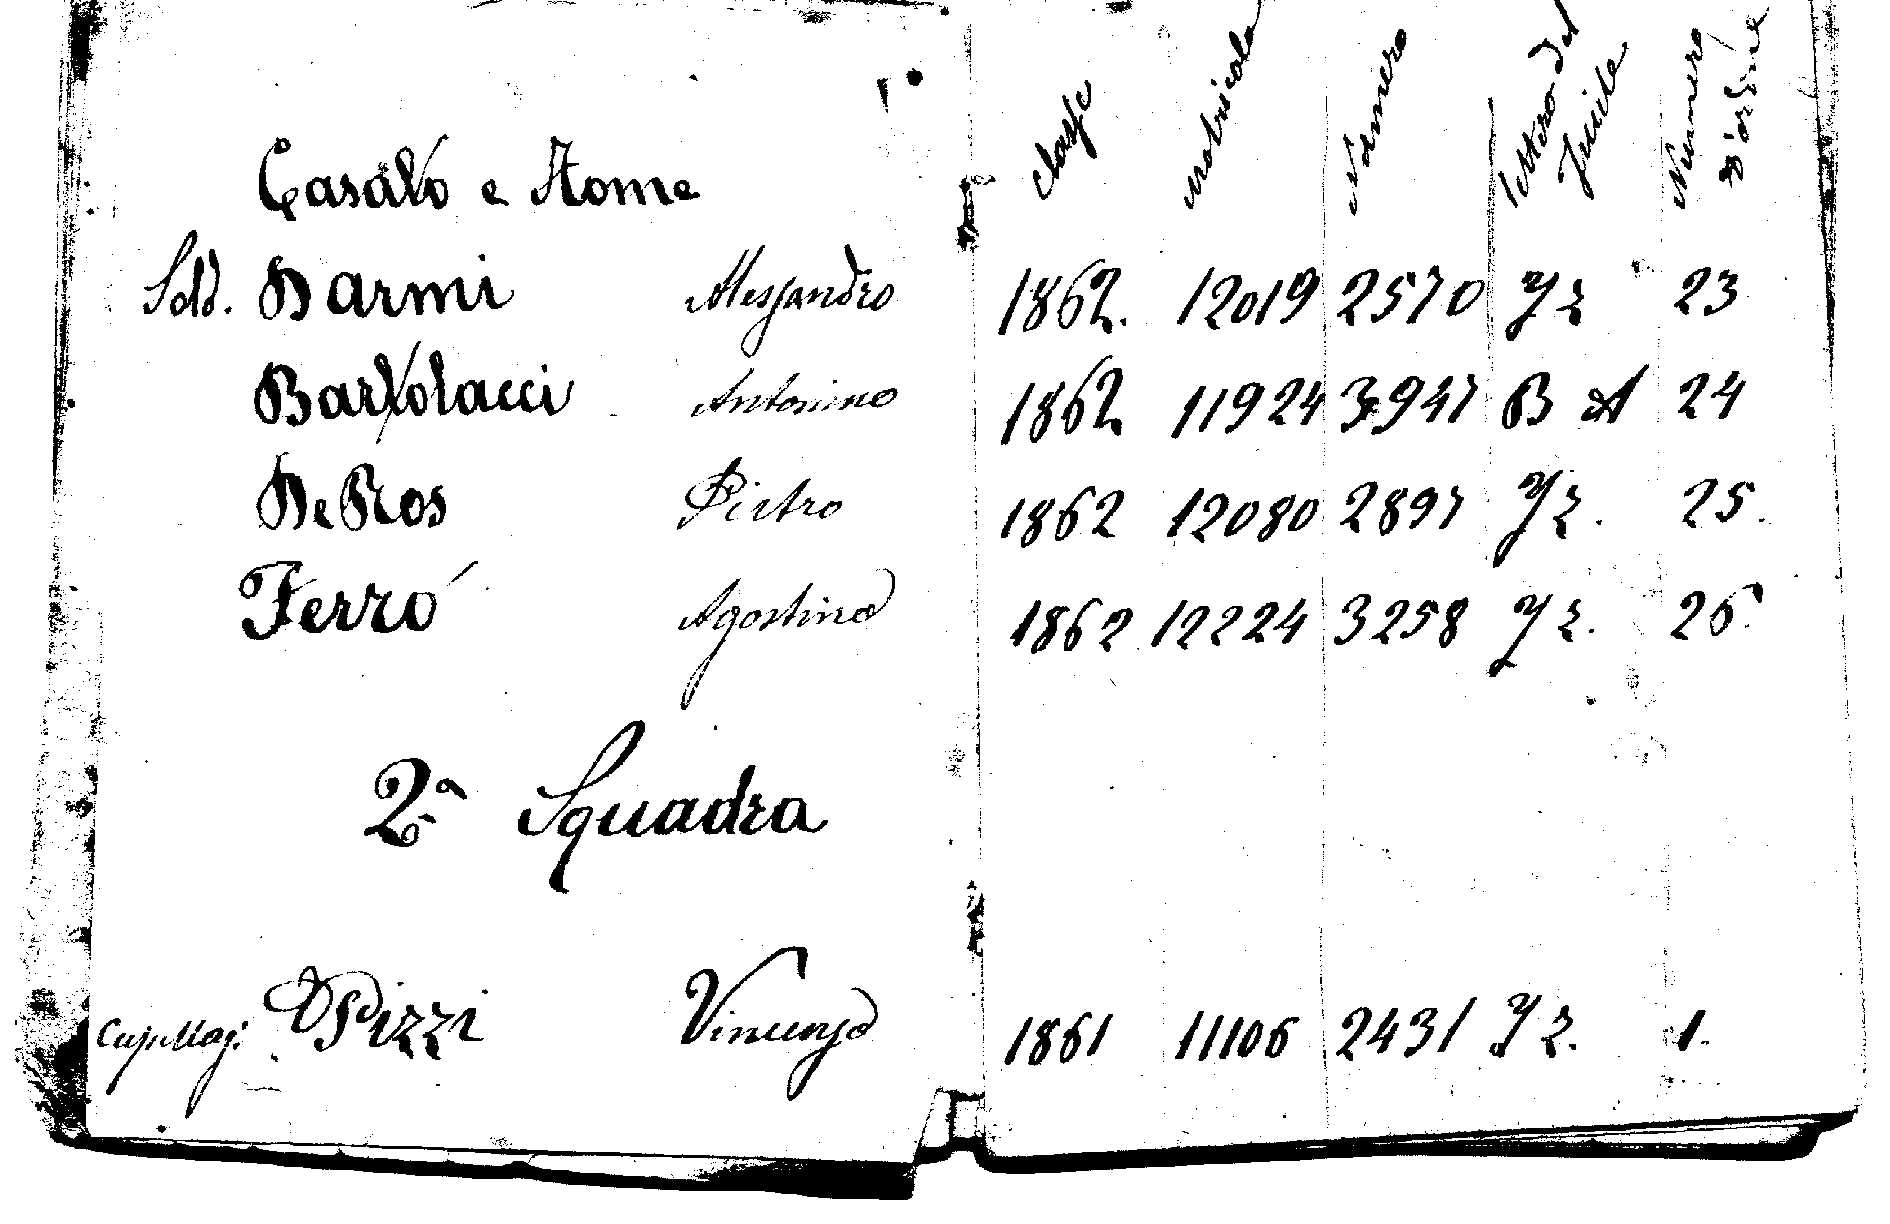 Classe Matricola Numero Lettera del Fucile Numero d'ordine
Casato e Nome
Sold. Darmi Alessandro 1862. 12019 2570 YZ 23
Bartolacci Antonino 1862 11924 3947 B A 24
De Ros Pietro 1862 12080 2897 YZ. 25.
Ferro Agostino 1862 12224 3258 YZ. 26.
2ª Squadra
Cap. Mag. Pizzi Vincenzo 1861 11106 2431 YZ. 1.